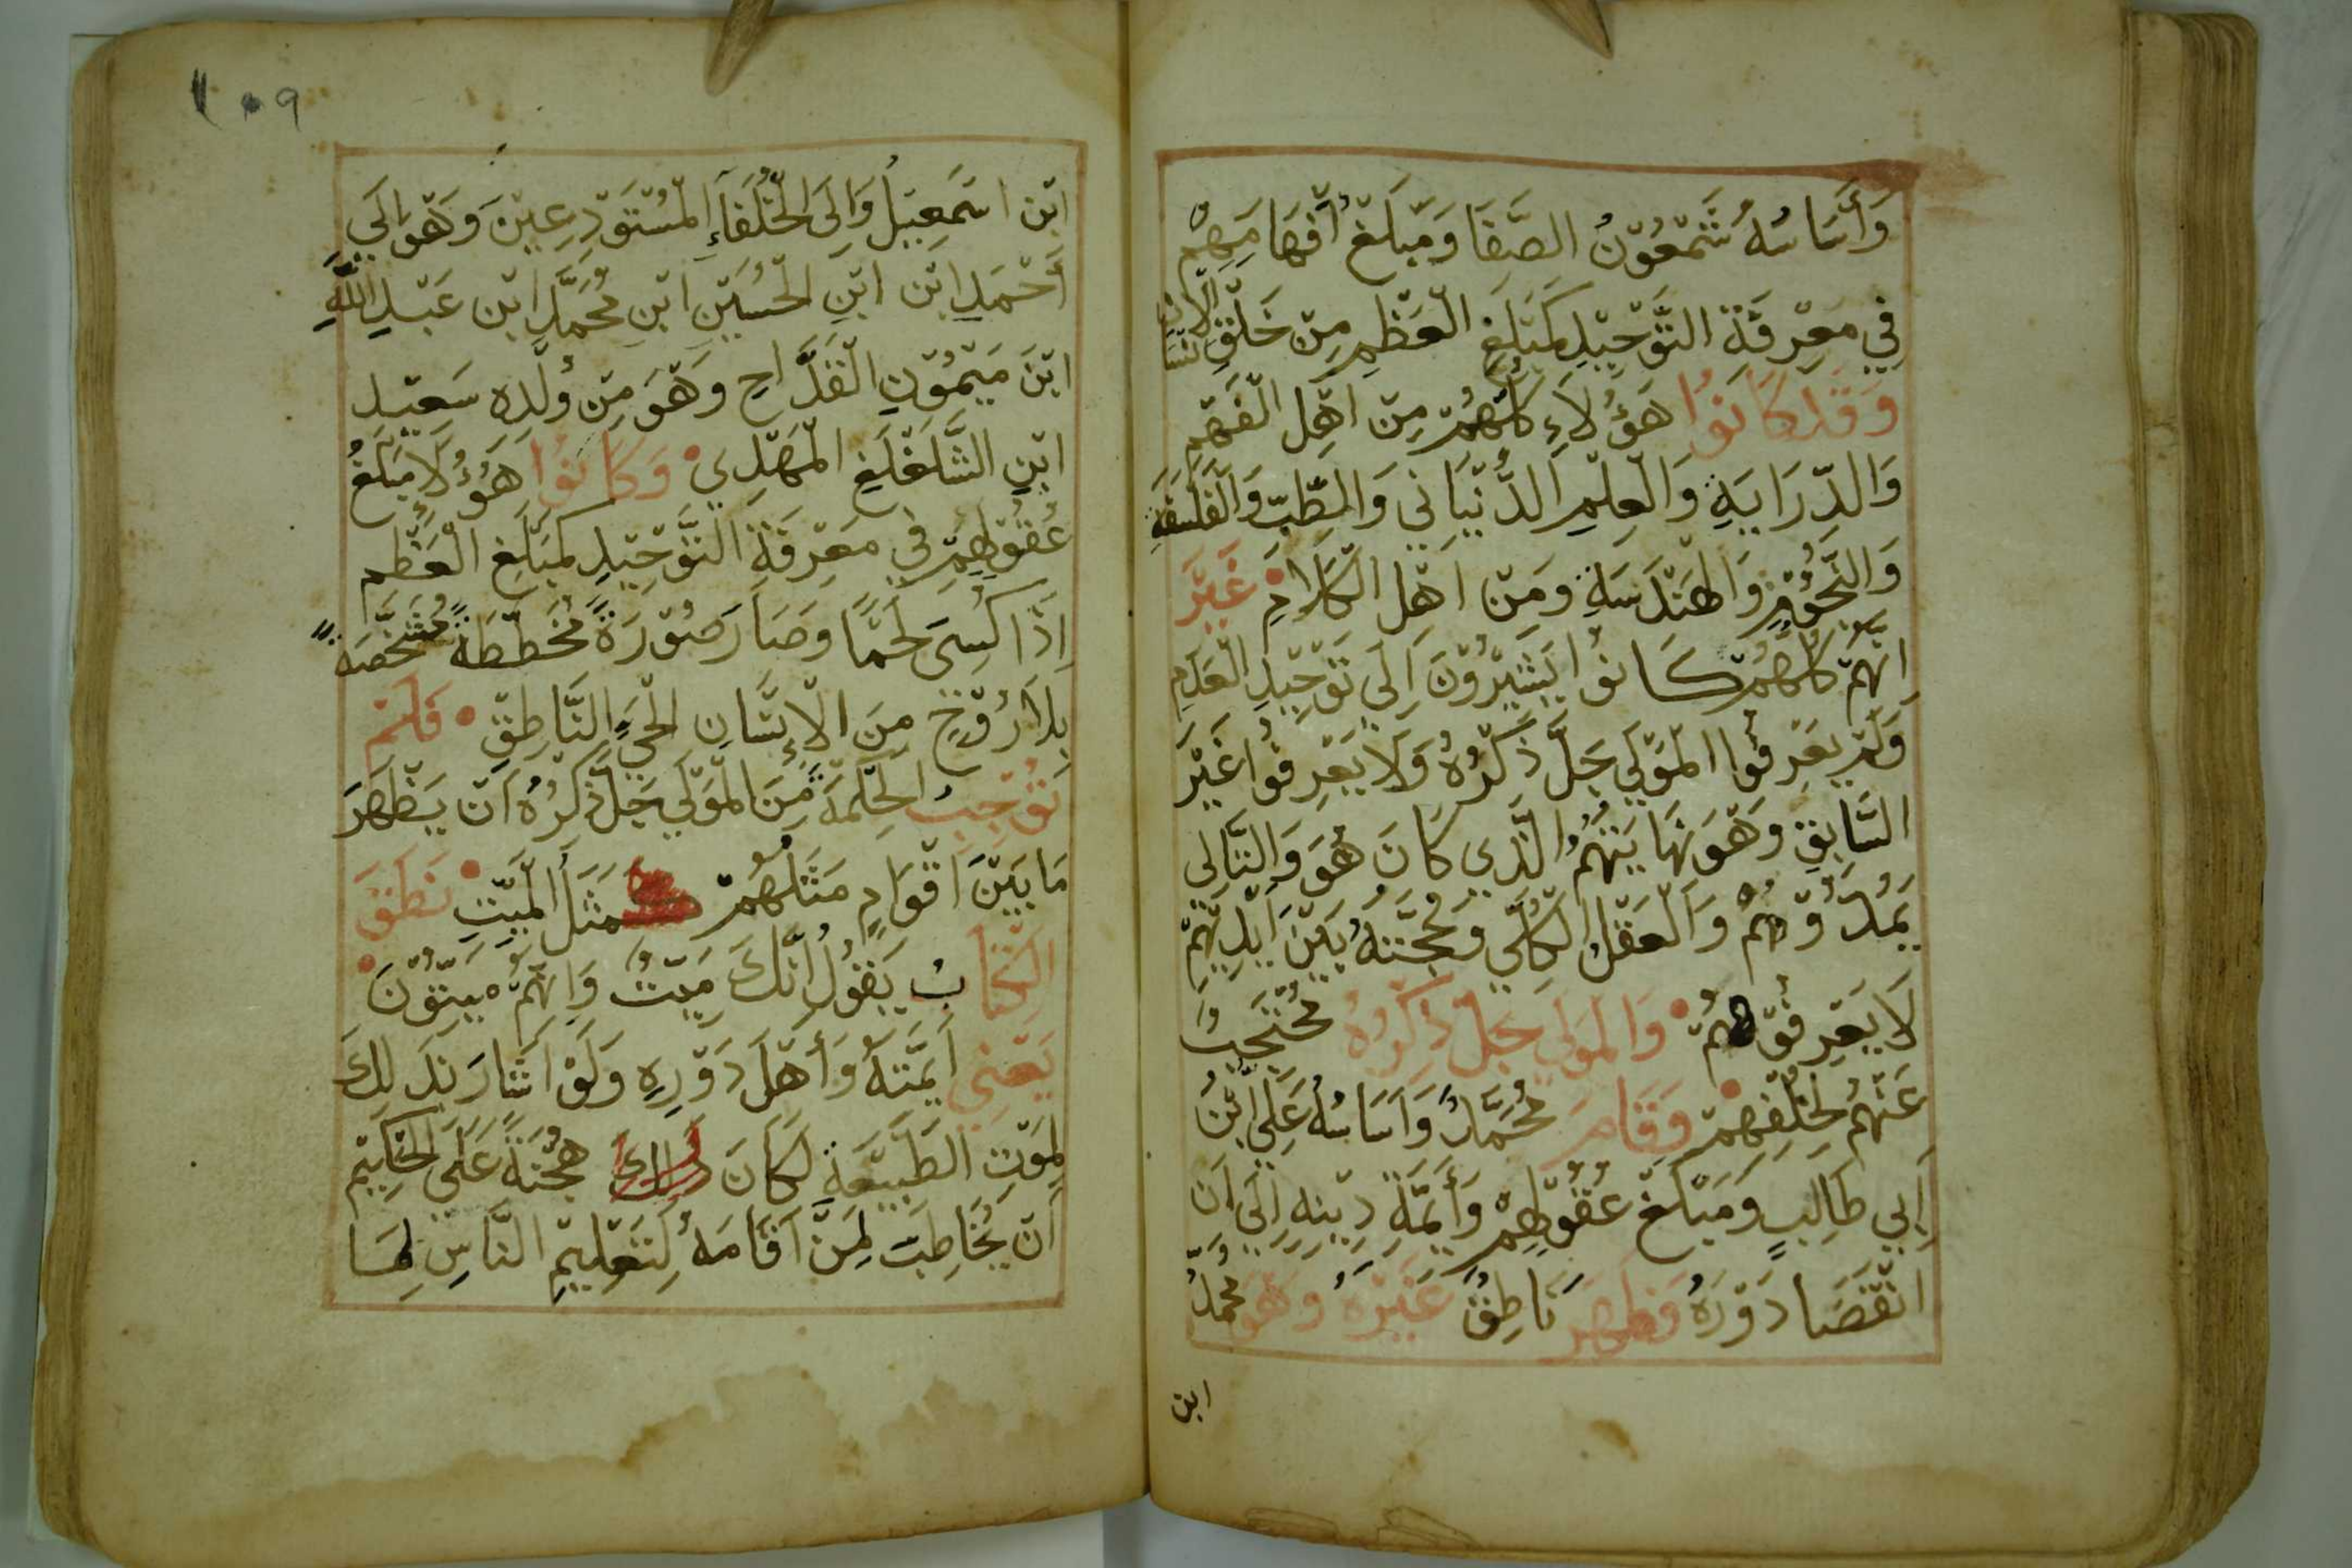 وَأَسَاسُهُ شَمْعُوْنُ الصَّفَا وَمَبْلَغُ أَفْهَامِهِمْ
فِي مَعْرِفَةِ التَّوْحِيْدِ كَمَبْلَغِ الْعَظْمِ مِنْ خَلْقِ الْإِنْسَا
وَقَدْ كَانُوْا هَؤُلَاءِ كُلُّهُمْ مِنْ اَهْلِ الْفَهْمِ
وَالدِّرَايَةِ وَالْعِلْمِ الدُّنْيَانِي وَالطِّبِّ وَالْفَلْسَفَةِ
وَالنُّجُوْمِ وَالْهَنْدَسَةِ وَمِنْ اَهْلِ الْكَلَامِ غَيْرَ
اِنَّهُمْ كُلُّهُمْ كَانُوْا يُشِيْرُوْنَ اِلَى تَوْحِيْدِ الْعَدَمِ
وَلَمْ يَعْرِفُوْا الْمَوْلَى جَلَّ ذِكْرُهُ وَلَا يَعْرِفُوْا غَيْرَ
السَّابِقِ وَهْوَ نِهَايَتُهُمُ الَّذِي كَانَ هُوَ وَالتَّالِي
يَمُدُّوْهُمْ وَالْعَقْلُ الْكُلِّي وَحُجَّتُهُ بَيْنَ اَيْدِيْهِمْ
لَا يَعْرِفُوْهُمْ وَالْمَوْلَى جَلَّ ذِكْرُهُ مُحْتَجِبٌ
عَنْهُمْ لِخُلْفِهِمْ وَقَامَ مُحَمَّدٌ وَاَسَاسُهُ عَلِي ابْنُ
اَبِي طَالِبٍ وَمَبْلَغُ عُقُوْلِهِمْ وَأَيِمَّةِ دِيْنِهِ اِلَى اَنِ
انْقَضَا دَوْرُهُ وَظَهَرَ نَاطِقٌ غَيْرُهُ وَهْوَ مُحَمَّدُ
ابن
١٠٩
ابْنِ اسْمَعِيْلَ وَاِلَى الْخُلَفَاءِ الْمُسْتَوْدِعِيْنَ وَهْوَ اِلَى
اَحْمَدِ ابْنِ ابْنِ الْحُسَيْنِ ابْنِ مُحَمَّدِ ابْنِ عَبْدِ اللَّهِ
ابْنَ مَيْمُوْنِ الْقَدَّاحِ وَهْوَ مِنْ وُلْدِهِ سَعِيْدِ
ابْنِ الشَّلَغْلَغِ الْمَهْدِي وَكَانُوْا هَؤُلَاءِ مَبْلَغُ
عُقُوْلِهِمْ فِي مَعْرِفَةِ التَّوْحِيْدِ كَمَبْلَغِ الْعَظْمِ
اِذَا كُسِيَ لَحْمًا وَصَارَ صُوْرَةً مُخَطَّطَةً مُشَخَّصَةً
بِلَا رُوْحٍ مِنَ الْإِنْسَانِ الْحَيِّ النَّاطِقِ فَلَمْ
تُوْجِبُ الْحِكْمَةَ مِنَ الْمَوْلَى جَلَّ ذِكْرُهُ اَنْ يَظْهَرَ
مَا بَيْنَ اَقْوَامٍ مَثَلُهُمْ مَثَلُ الْمَيِّتِ نَطَقَ
الْكِتَابُ يَقُوْلُ اِنَّكَ مَيِّتٌ وَاِنَّهُمْ مَيِّتُوْنَ
يَعْنِي اَيِمَّتَهُ وَأَهْلَ دَوْرِهِ وَلَوْ اَشَارَ بِذَلِكَ
لِمَوْتِ الطَّبِيْعَةِ لَكَانَ هُجْنَةً عَلَى الْحَكِيْمِ
اَنْ يُخَاطِبَ لِمَنْ اَقَامَهُ لِتَعْلِيْمِ النَّاسِ لِمَا